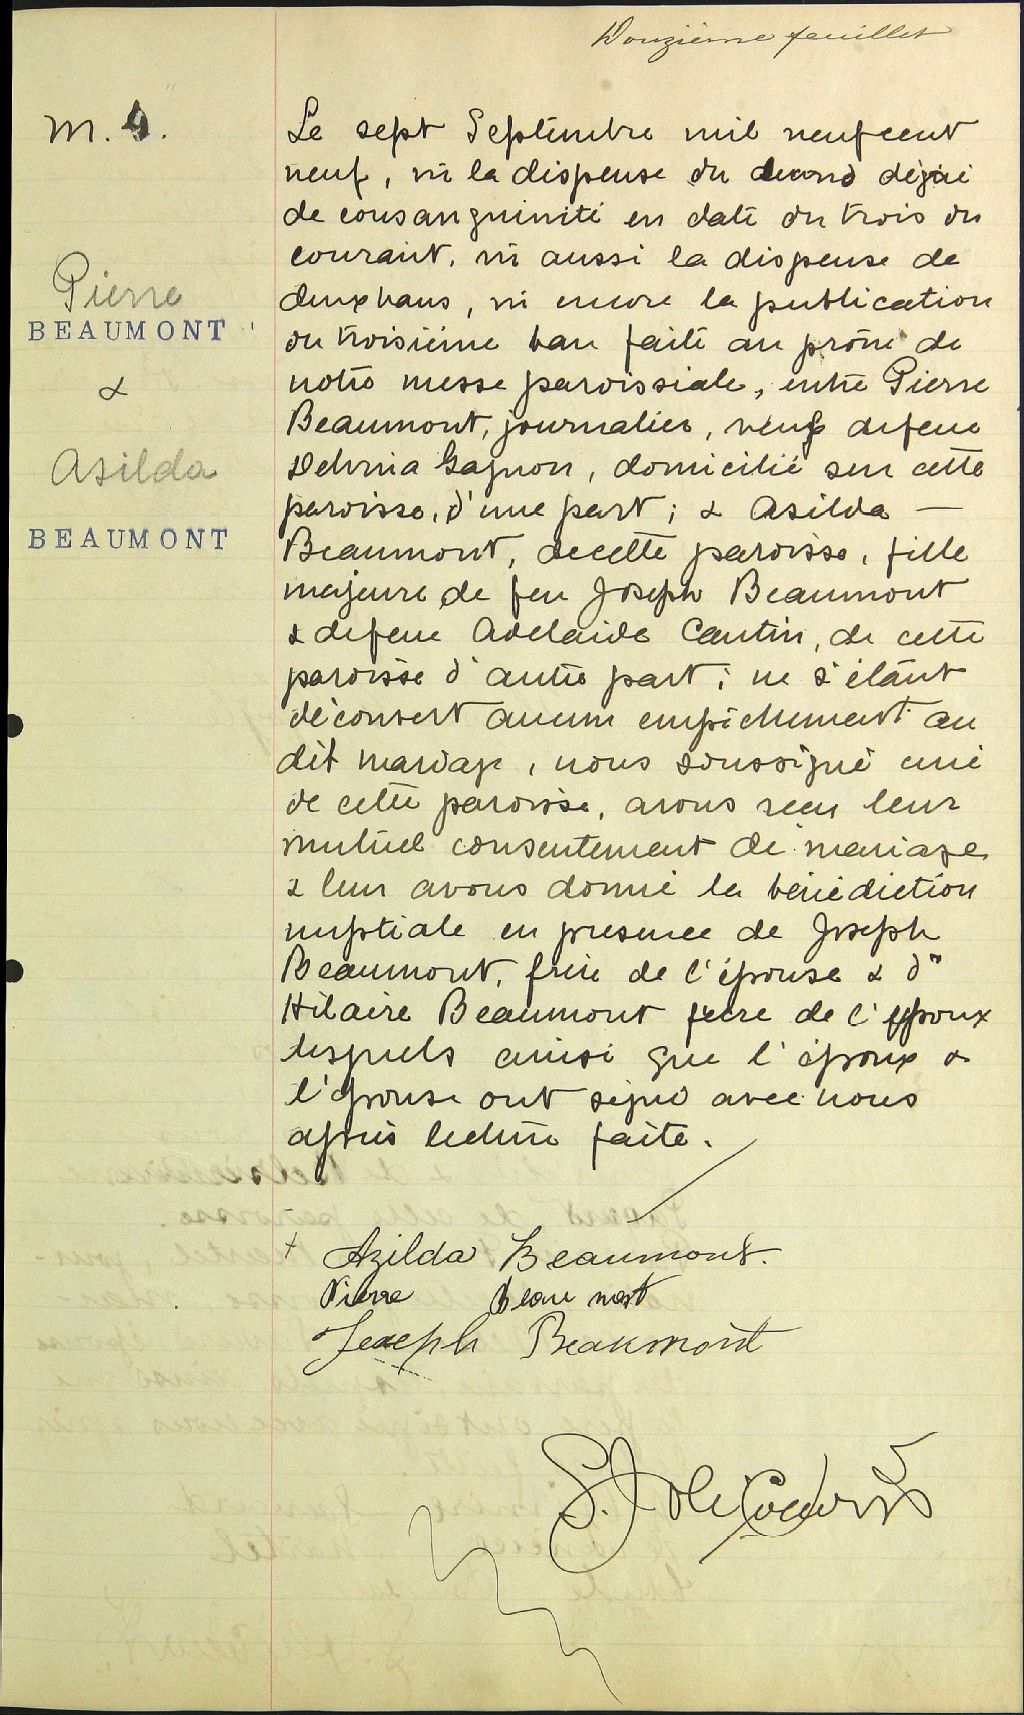 Douzième feuillet
M. 9.
Pierre
BEAUMONT
&
Asilda
BEAUMONT
Le sept Septembre mil neuf cent
neuf, vu la dispense du second degré
de consanguinité en date du trois du
courant, vu aussi la dispense de
deux bans, vu encore la publication
du troisième ban faite au prône de
notre messe paroissiale, entre Pierre
Beaumont, journalier, veuf de feue
Gagnon, domicilié sur cette
paroisse, d'une part; & Asilda —
Beaumont, de cette paroisse, fille
majeure de feu Joseph Beaumont
& de feue Adelaide Cantin, de cette
paroisse d'autre part; ne s'étant
découvert aucun empêchement au
dit mariage, nous soussigné curé
de cette paroisse, avons reçu leur
mutuel consentement de mariage
& leur avons donné la bénédiction
nuptiale en presence de Joseph
Beaumont, frère de l'épouse & d'
Hilaire Beaumont frère de l'époux
lesquels ainsi que l'époux &
l'épouse ont signé avec nous
après lecture faite.
+ Azilda Beaumont.
Pierre Beaumont
Joseph Beaumont